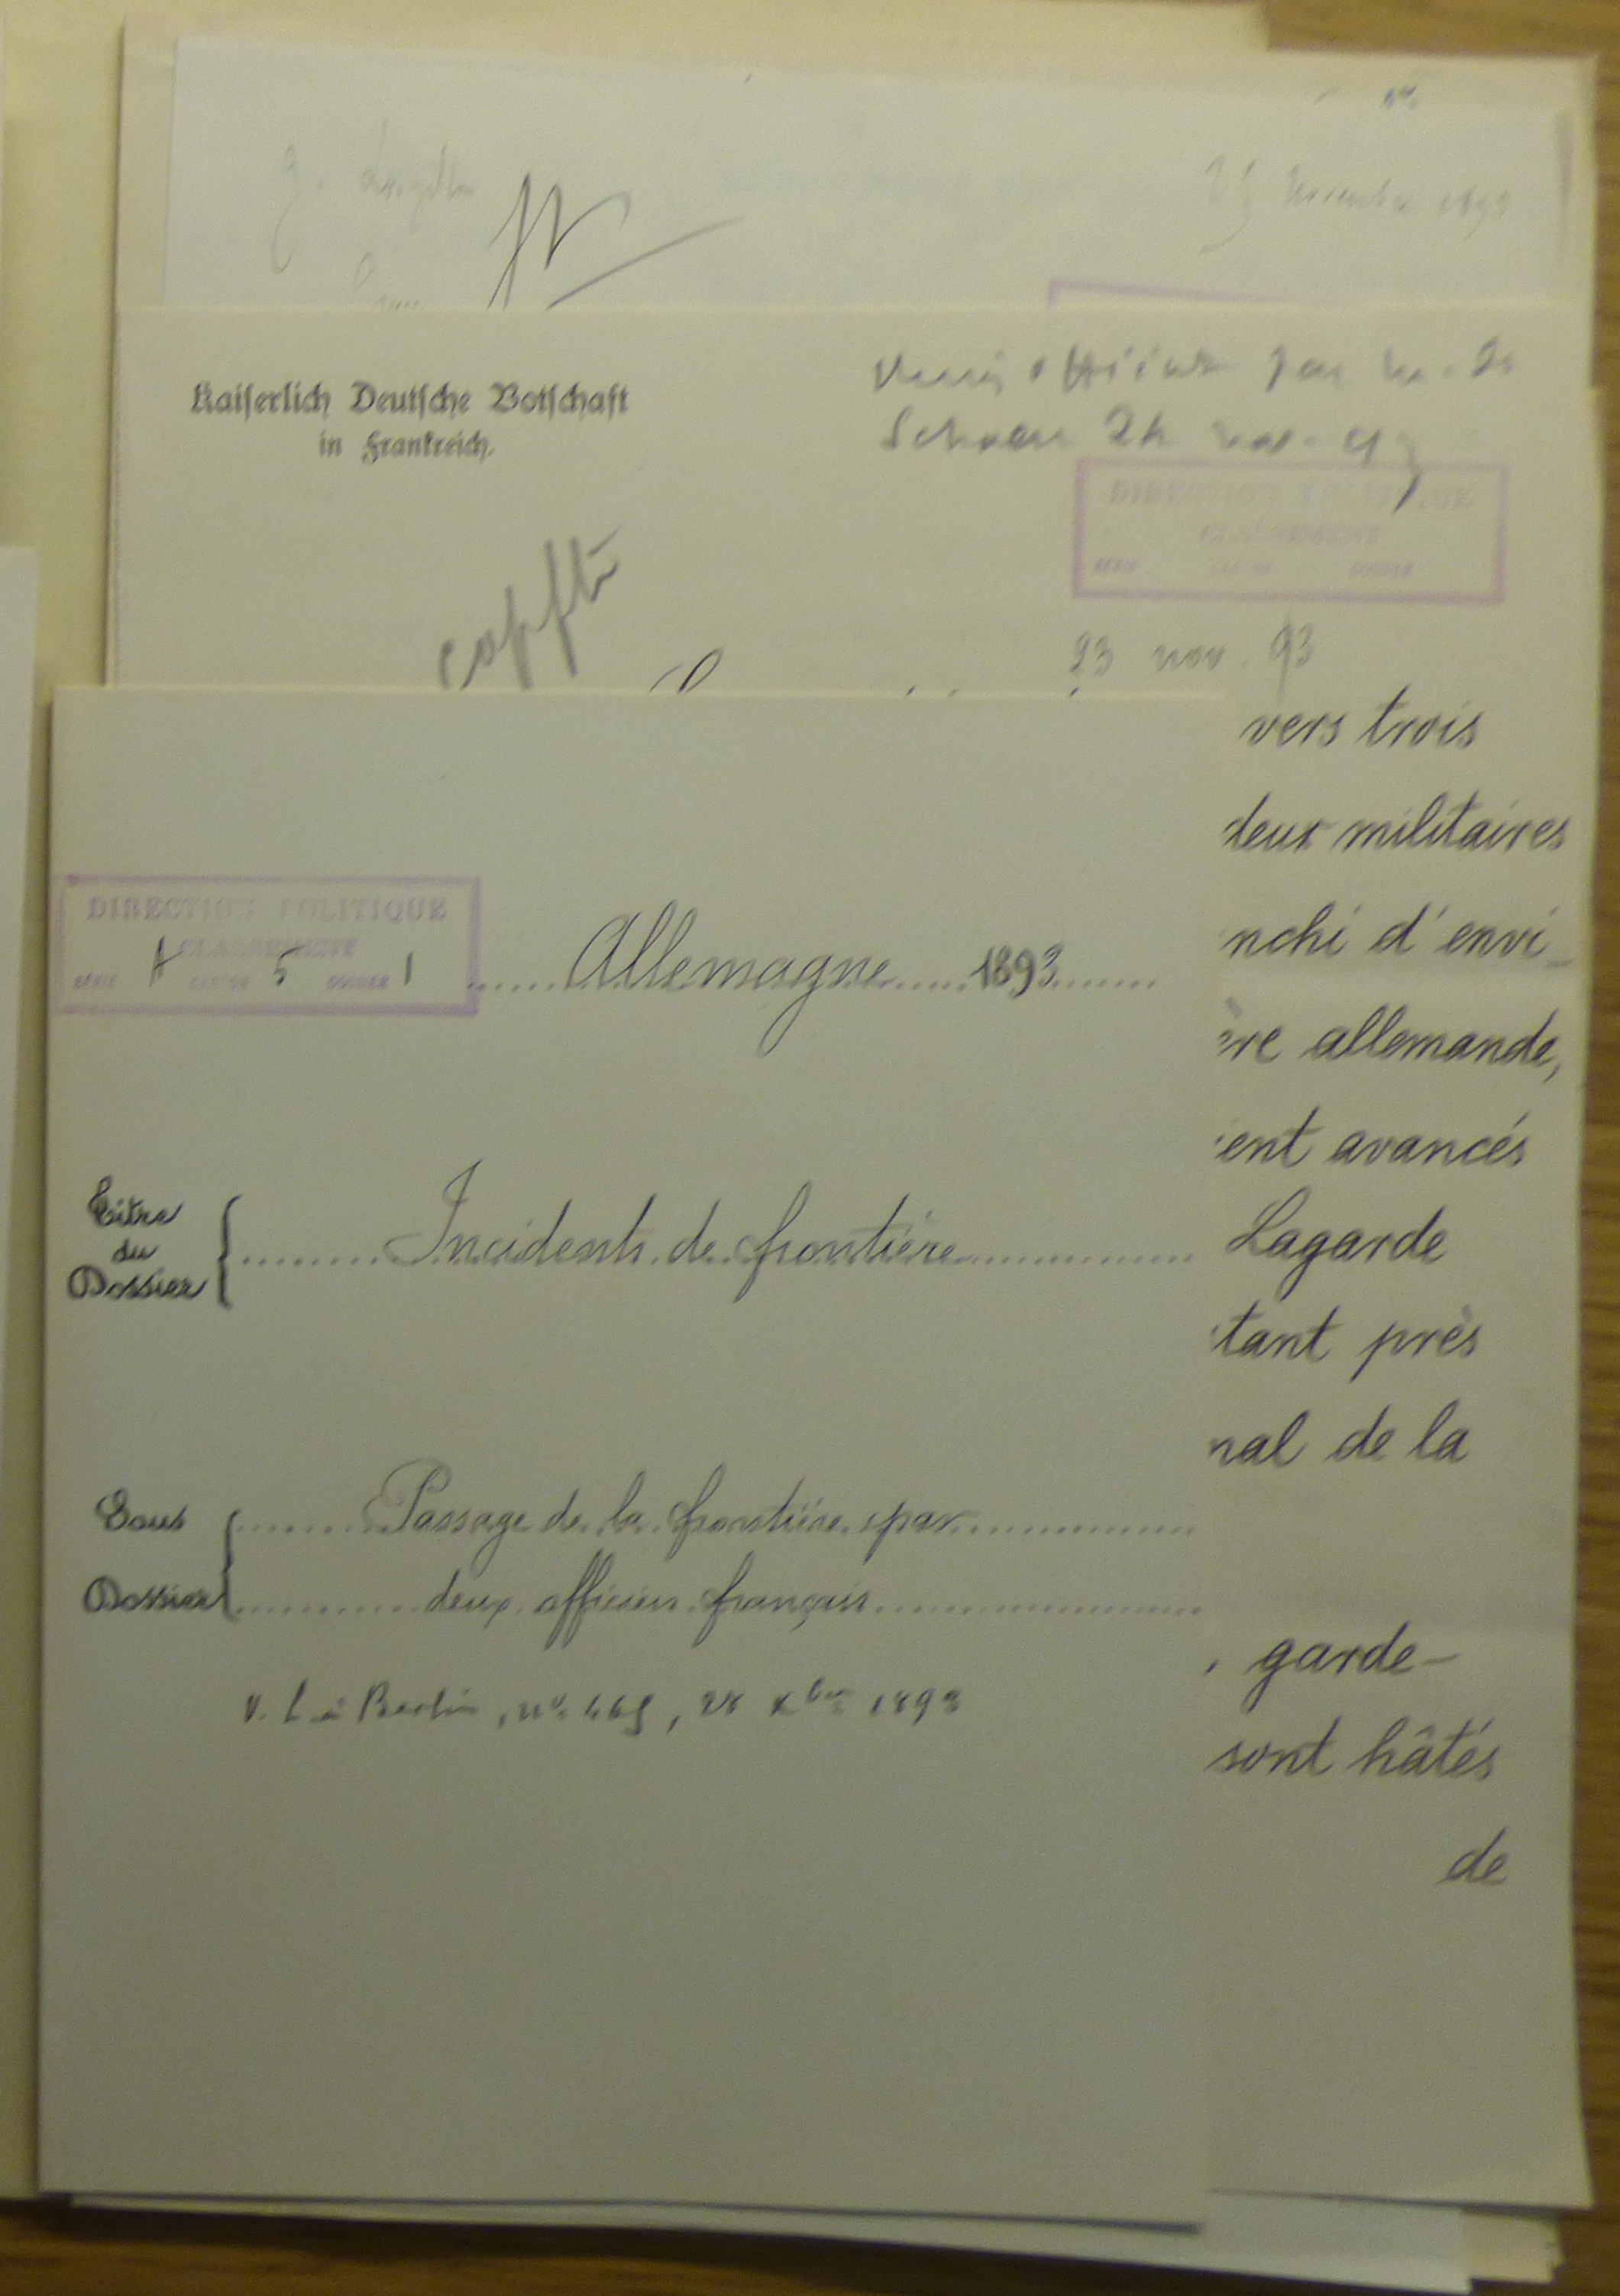 novembre 1893
Kaiserlich Deutsche Botschaft
in Frankreich.
Remis officieux par M. de
Schoen 24 nov. 93
DIRECTION POLITIQUE
CLASSEMENT
SÉRIE CARTON DOSSIER
23 nov. 93
vers trois
deux militaires
nchi d'envi-
ère allemande,
ient avancés
Lagarde
tant près
nal de la
, garde-
sont hâtés
de
DIRECTION POLITIQUE
CLASSEMENT
SÉRIE A CARTON 5 DOSSIER 1
Allemagne 1893
Titre
du
Dossier
Incidents de frontière
Sous
Dossier
Passage de la frontière par
deux officiers français
V. L. à Berlin, nº 465, 28 Xbre 1893